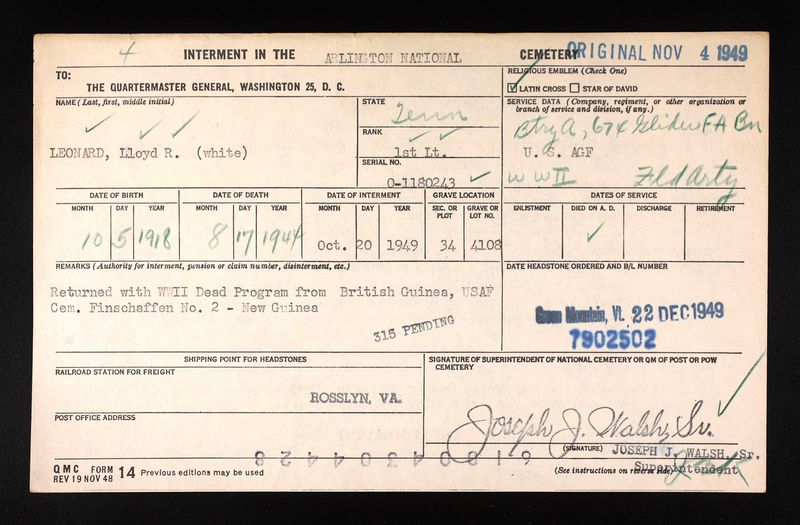 4
INTERMENT IN THE ARLINGTON NATIONAL CEMETERY
ORIGINAL NOV 4 1949
TO:
THE QUARTERMASTER GENERAL, WASHINGTON 25, D. C.
RELIGIOUS EMBLEM (Check One)
☑ LATIN CROSS ☐ STAR OF DAVID
NAME (Last, first, middle initial)
LEONARD, Lloyd R. (white)
STATE
Tenn
RANK
1st Lt.
SERIAL NO.
O-1180243
SERVICE DATA (Company, regiment, or other organization or branch of service and division, if any.)
Btry A, 674 Glider FA Bn
U. S. AGF
WWII Fld Arty
DATE OF BIRTH
MONTH DAY YEAR
10 5 1918
DATE OF DEATH
MONTH DAY YEAR
8 17 1944
DATE OF INTERMENT
MONTH DAY YEAR
Oct. 20 1949
GRAVE LOCATION
SEC. OR PLOT GRAVE OR LOT NO.
34 4108
DATES OF SERVICE
ENLISTMENT DIED ON A. D. DISCHARGE RETIREMENT
REMARKS (Authority for interment, pension or claim number, disinterment, etc.)
Returned with WWII Dead Program from British Guinea, USAF
Cem. Finschaffen No. 2 - New Guinea
315 PENDING
DATE HEADSTONE ORDERED AND B/L NUMBER
Green Mountain, Vt. 22 DEC 1949
7902502
SHIPPING POINT FOR HEADSTONES
RAILROAD STATION FOR FREIGHT
ROSSLYN, VA.
POST OFFICE ADDRESS
SIGNATURE OF SUPERINTENDENT OF NATIONAL CEMETERY OR QM OF POST OR POW CEMETERY
Joseph J. Walsh, Sr.
(SIGNATURE) JOSEPH J. WALSH, Sr.
Superintendent
(See instructions on reverse side)
QMC FORM 14 Previous editions may be used
REV 19 NOV 48